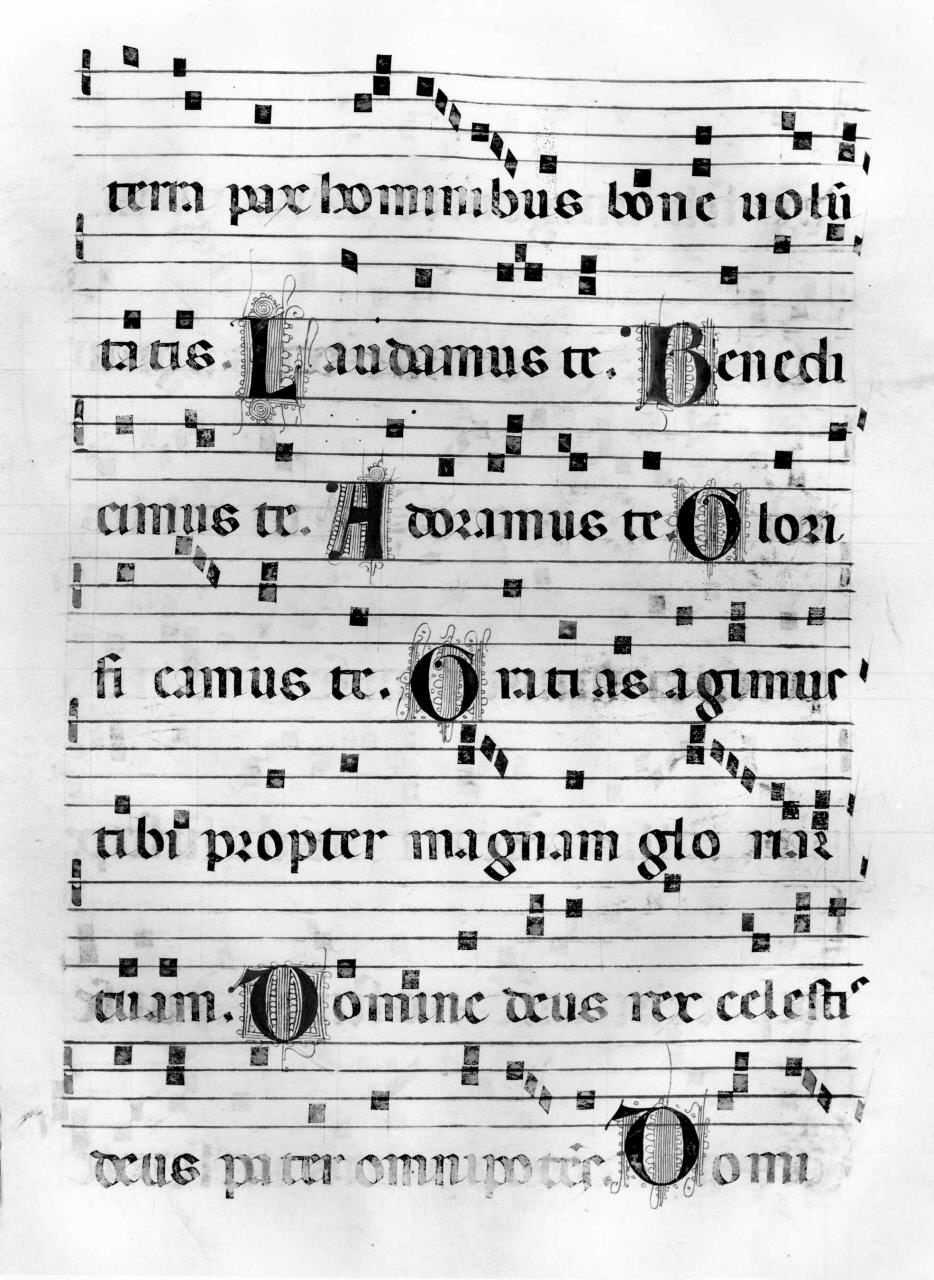 terra pax hominibus bone uolū
tatis. Laudamus te. Benedi
cimus te. Adoramus te. Glori
fi camus te. Gratias agimus
tibi propter magnam glo riar
tuam. Domine deus rex celestis
deus pater omnipotēs. Domi